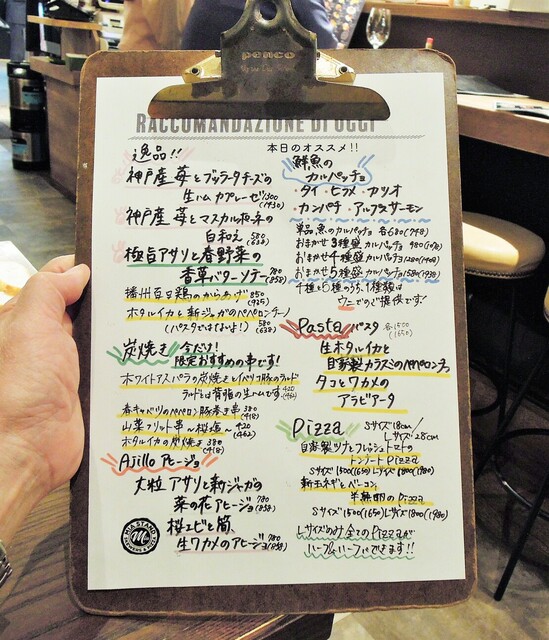 penco
RACCOMANDAZIONE DI OGGI
本日のオススメ!!
逸品!!
神戸産 苺とブッラータチーズの
生ハムカプレーゼ 1300 (1430)
神戸産 苺とマスカルポーネの
白和え 580 (638)
極旨アサリと春野菜の
香草バターソテー 780 (858)
播州百日鶏のからあげ 850 (935)
ホタルイカと新じゃがのペペロンチーノ
(パスタではないよ!) 580 (638)
炭焼き 今だけ!
限定おすすめの串です!
ホワイトアスパラの炭焼きとイベリコ豚のラルド
ラルドとは背脂の生ハムです 420 (462)
春キャベツのペペロン豚巻き串 380 (418)
山菜フリット串 〜桜塩〜 420 (462)
ホタルイカの炭焼き 380 (418)
Ajillo アヒージョ
大粒アサリと新じゃがの
菜の花アヒージョ 780 (858)
桜エビと筍、
生ワカメのアヒージョ 780 (858)
鮮魚の
カルパッチョ
・タイ・ヒラメ・カツオ
・カンパチ・アルプスサーモン
単品魚のカルパッチョ 各680 (748)
おまかせ3種盛カルパッチョ 980 (1078)
おまかせ4種盛カルパッチョ 1280 (1408)
おまかせ5種盛カルパッチョ 1580 (1738)
4種と5種のうち、1種類は
ウニでのご提供です!
Pasta パスタ 各1500 (1650)
生ホタルイカと
自家製カラスミのペペロンチーノ
タコとワカメの
アラビアータ
Pizza Sサイズ 18cm/
Lサイズ 28cm
自家製ツナとフレッシュトマトの
トンナートPizza
Sサイズ1500(1650) Lサイズ1800(1980)
新玉ネギとベーコン、
半熟卵のPizza
Sサイズ1500(1650) Lサイズ1800(1980)
Lサイズのみ全てのPizzaが
ハーフ&ハーフにできます!!